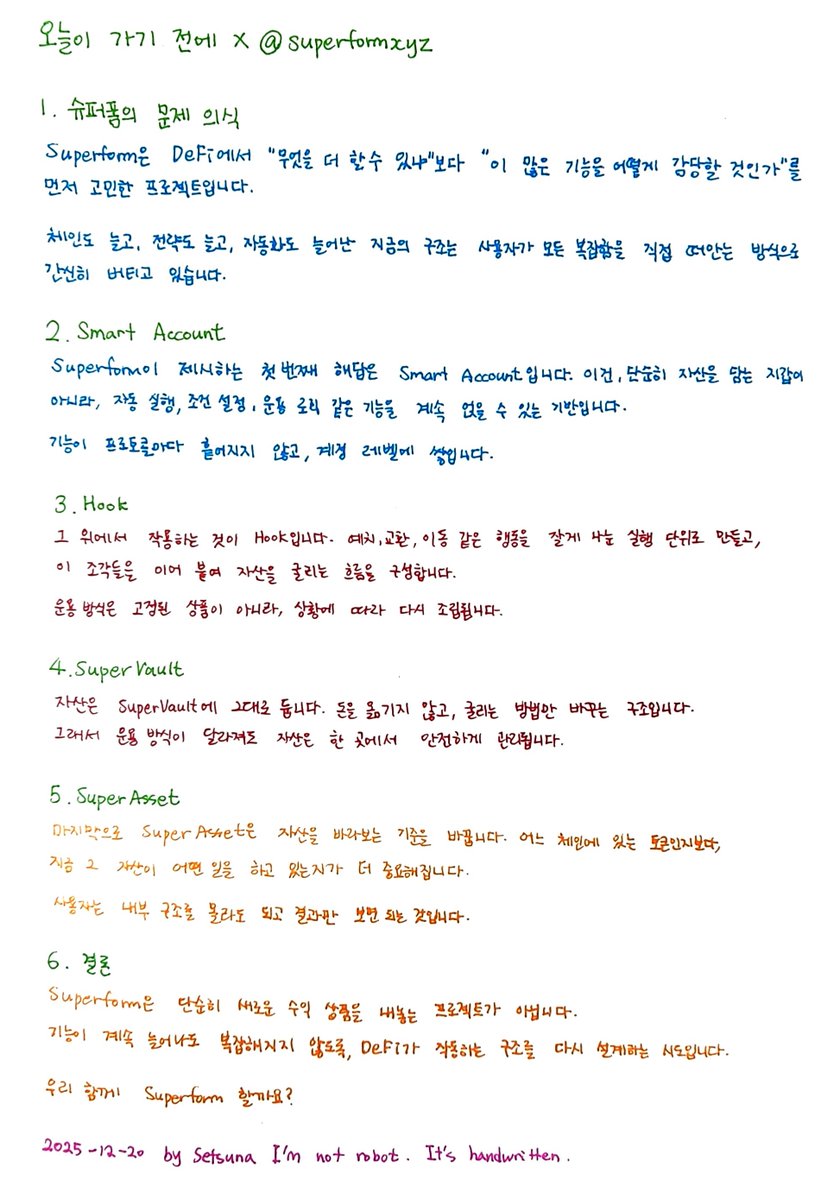 오늘이 가기 전에 X @superformxyz
1. 슈퍼폼의 문제 의식
Superform은 DeFi에서 "무엇을 더 할 수 있나"보다 "이 많은 기능을 어떻게 감당할 것인가"를
먼저 고민한 프로젝트입니다.
체인도 늘고, 전략도 늘고, 자동화도 늘어난 지금의 구조는 사용자가 모든 복잡함을 직접 떠안는 방식으로
간신히 버티고 있습니다.
2. Smart Account
Superform이 제시하는 첫 번째 해답은 Smart Account입니다. 이건, 단순히 자산을 담는 지갑이
아니라, 자동 실행, 조건 설정, 운용 로직 같은 기능을 계속 얹을 수 있는 기반입니다.
기능이 프로토콜마다 흩어지지 않고, 계정 레벨에 쌓입니다.
3. Hook
그 위에서 작동하는 것이 Hook입니다. 예치, 교환, 이동 같은 행동을 잘게 나눈 실행 단위로 만들고,
이 조각들을 이어 붙여 자산을 굴리는 흐름을 구성합니다.
운용 방식은 고정된 상품이 아니라, 상황에 따라 다시 조립됩니다.
4. SuperVault
자산은 SuperVault에 그대로 둡니다. 돈을 옮기지 않고, 굴리는 방법만 바꾸는 구조입니다.
그래서 운용 방식이 달라져도 자산은 한 곳에서 안전하게 관리됩니다.
5. SuperAsset
마지막으로 SuperAsset은 자산을 바라보는 기준을 바꿉니다. 어느 체인에 있는 토큰인지보다,
지금 그 자산이 어떤 일을 하고 있는지가 더 중요해집니다.
사용자는 내부 구조를 몰라도 되고 결과만 보면 되는 것입니다.
6. 결론
Superform은 단순히 새로운 수익 상품을 내놓는 프로젝트가 아닙니다.
기능이 계속 늘어나도 복잡해지지 않도록, DeFi가 작동하는 구조를 다시 설계하는 시도입니다.
우리 함께 Superform 할까요?
2025-12-20 by Setsuna I'm not robot. It's handwritten.